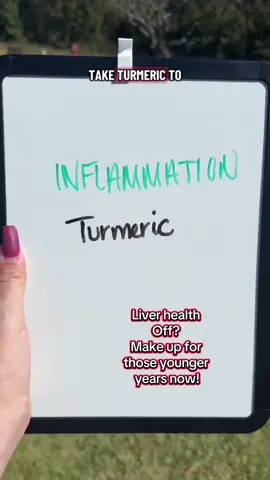 TAKE TURMERIC TO
INFLAMMATION
Turmeric
Liver health
Off?
Make up for
those younger
years now!